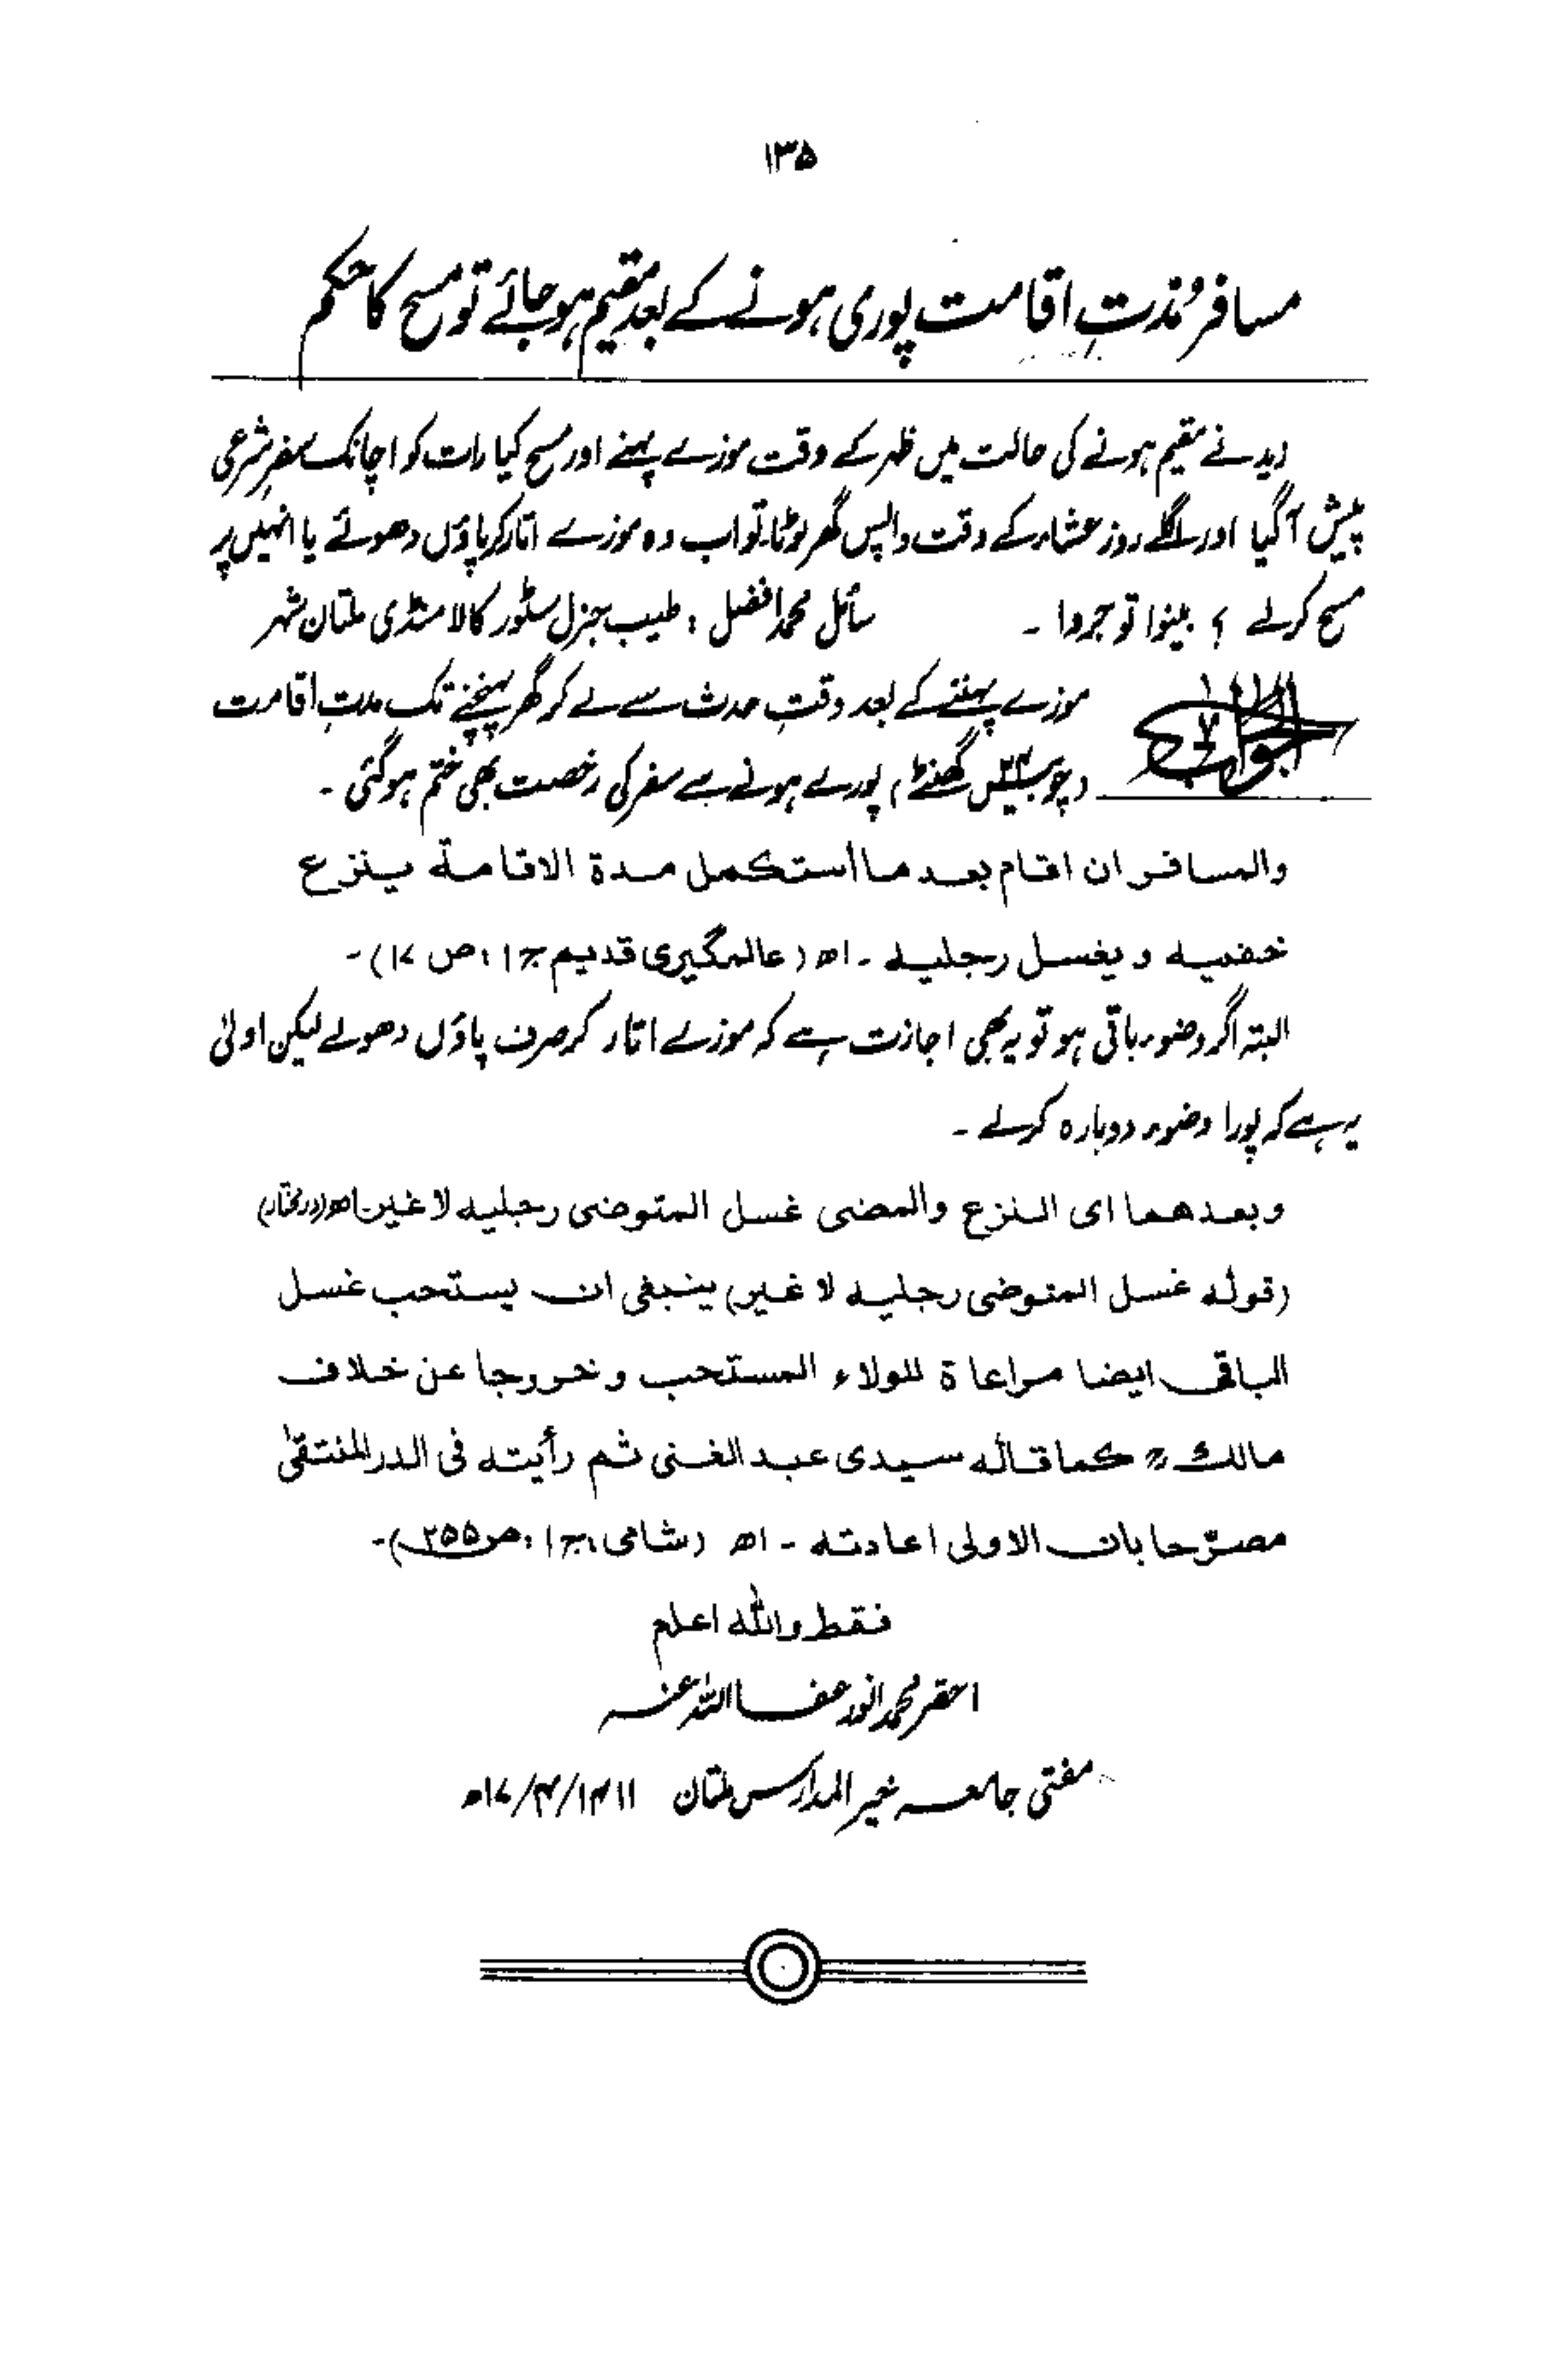 ۱۳۵
مسافر مُدّتِ اقامت پوری ہونے کے بعد مقیم ہو جائے تو مسح کا حکم
زید نے مقیم ہونے کی حالت میں ظہر کے وقت موزے پہنے اور مسح کیا رات کو اچانک سفرِ شرعی
پیش آگیا اور اگلے روز عشاء کے وقت واپس گھر لوٹا۔ تو اب وہ موزے اتار کر پاؤں دھوئے یا انہیں پر
مسح کرلے ؟ بینوا توجروا ۔ سائل محمد افضل ؛ طیب جنرل سٹور کالا منڈی ملتان شہر
الجواب موزے پہننے کے بعد وقتِ حدث سے لے کر گھر پہنچنے تک مدتِ اقامت
(چوبیس گھنٹہ) پورے ہونے سے سفر کی رخصت بھی ختم ہو گئی ۔
والمسافر ان اقام بعد ما استكمل مدة الاقامة ينزع
خفيه و يغسل رجليه ۔ اھ (عالمگیری قدیم ج۱ ؛ ص ۱۷)۔
البتہ اگر وضوء باقی ہو تو یہ بھی اجازت ہے کہ موزے اتار کر صرف پاؤں دھولے لیکن اولیٰ
یہ ہے کہ پورا وضوء دوبارہ کرلے ۔
وبعدهما ای النزع والمضی غسل المتوضی رجليه لا غير۔ اھ (درمختار)
(قوله غسل المتوضی رجليه لا غير) ينبغی ان يستحب غسل
الباقی ايضا مراعاة للولاء المستحب وخروجا عن خلاف
مالكؒ كما قاله سيدی عبد الغنی ثم رأيته فی الدر المنتقیٰ
مصرّحا بان الاولى اعادته ۔ اھ (شامی، ج۱ ؛ ص۲۵۵)۔
فقط واللہ اعلم
احقر محمد انور عفا اللہ عنہ
مفتی جامعہ خیر المدارس ملتان ۱۷/۴/۱۴۱۱ھ